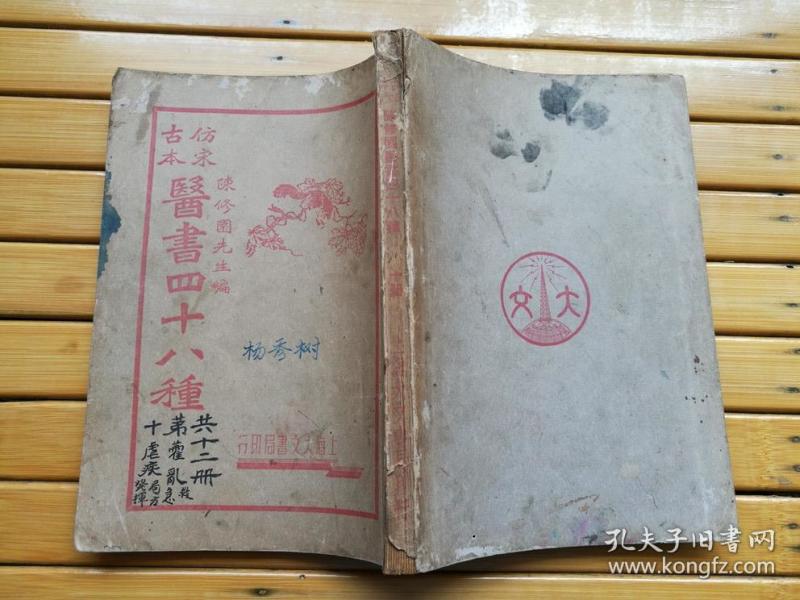 仿宋
古本
醫書四十八種
陳修園先生編
杨秀树
共十二册
第
霍亂
救急
十
瘧疾
局方
發揮
上海大文書局印行
八種
大文
孔夫子旧书网
www.kongfz.com